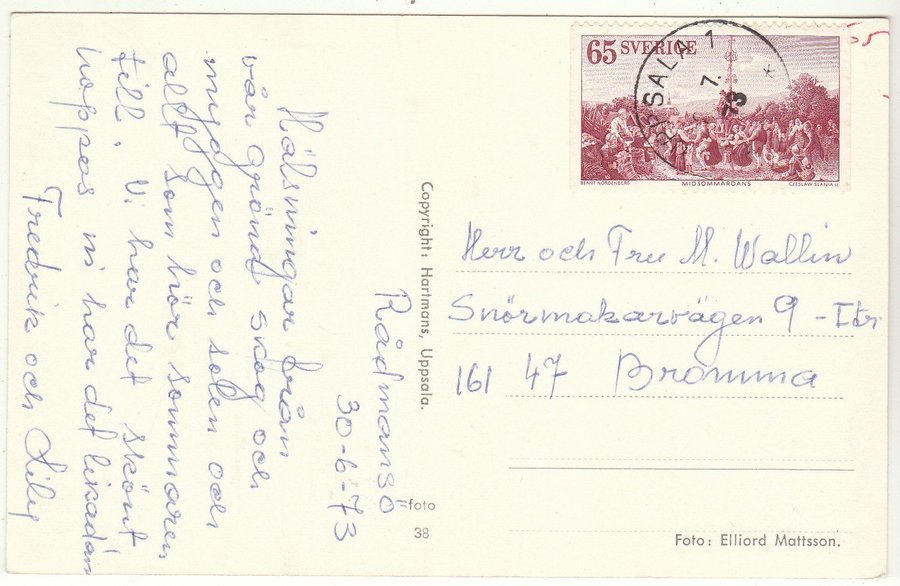 Rådmansö
30-6-73
Hälsningar från
vår gröna skog och
myggen och solen och
allt som hör sommaren
till. Vi har det skönt
hoppas ni har det likadan
Fredrik och Lily
Copyright: Hartmans, Uppsala.
=foto
38
65 SVERIGE
UPPSALA 1
7.
73
BENGT NORDENBERG
MIDSOMMARDANS
CZESLAW SLANIA SC.
Herr och Fru M. Wallin
Snörmakarvägen 9 - I tr
161 47 Bromma
Foto: Elliord Mattsson.